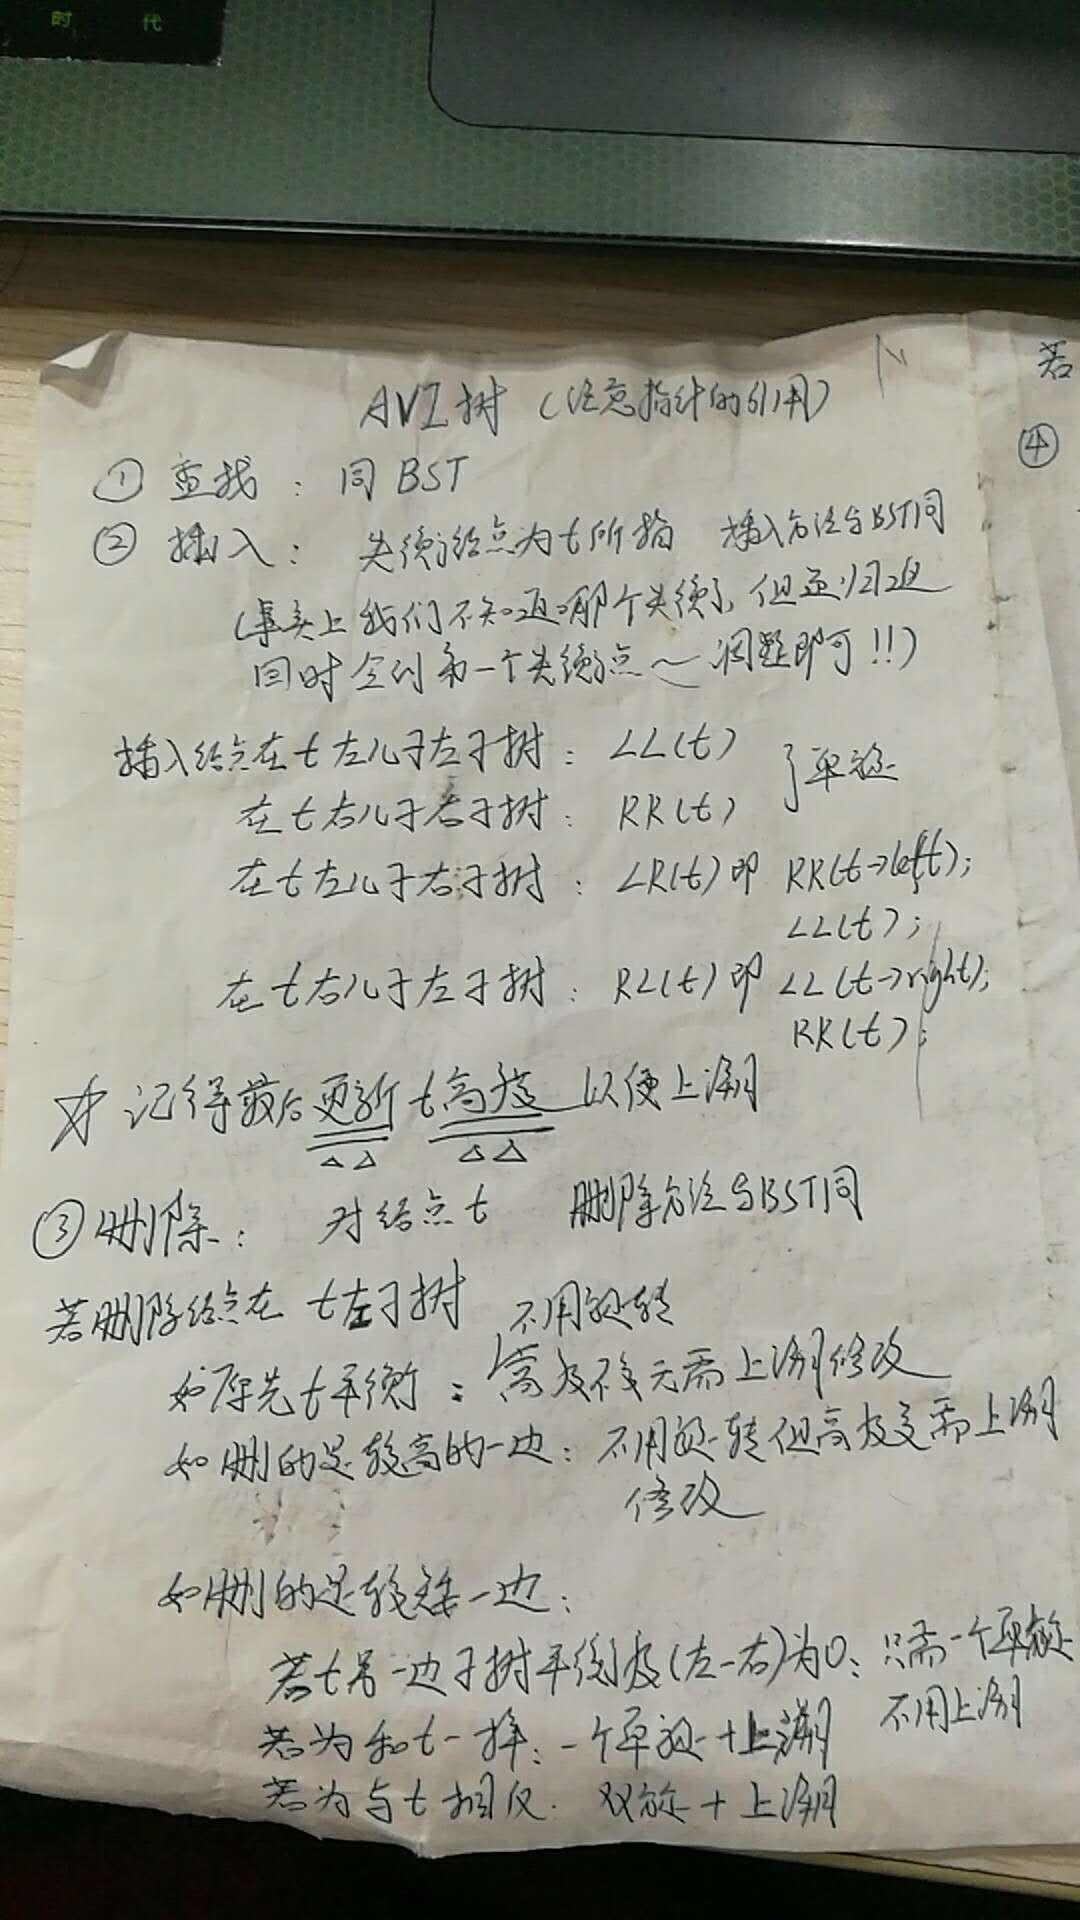 时 代
AVL树 (注意指针的引用)
① 查找: 同 BST
② 插入: 失衡结点为t所指 插入方法与BST同
(事实上我们不知道哪个失衡了, 但递归返
回时会到第一个失衡点~调整即可!!)
插入结点在t左儿子左子树: LL(t) } 单旋
在t右儿子右子树: RR(t)
在t左儿子右子树: LR(t) 即 RR(t->left);
LL(t);
在t右儿子左子树: RL(t) 即 LL(t->right);
RR(t);
☆ 记得最后更新t高度 以便上溯
③ 删除: 对结点t 删除方法与BST同
若删除结点在 t左子树
不用旋转
如原先t平衡: 高度不变无需上溯修改
如删的是较高的一边: 不用旋转但高度变需上溯
修改
如删的是较矮一边:
若t另一边子树平衡度(左-右)为0: 只需一个单旋
不用上溯
若为和t一样: 一个单旋+上溯
若为与t相反: 双旋+上溯
若
④